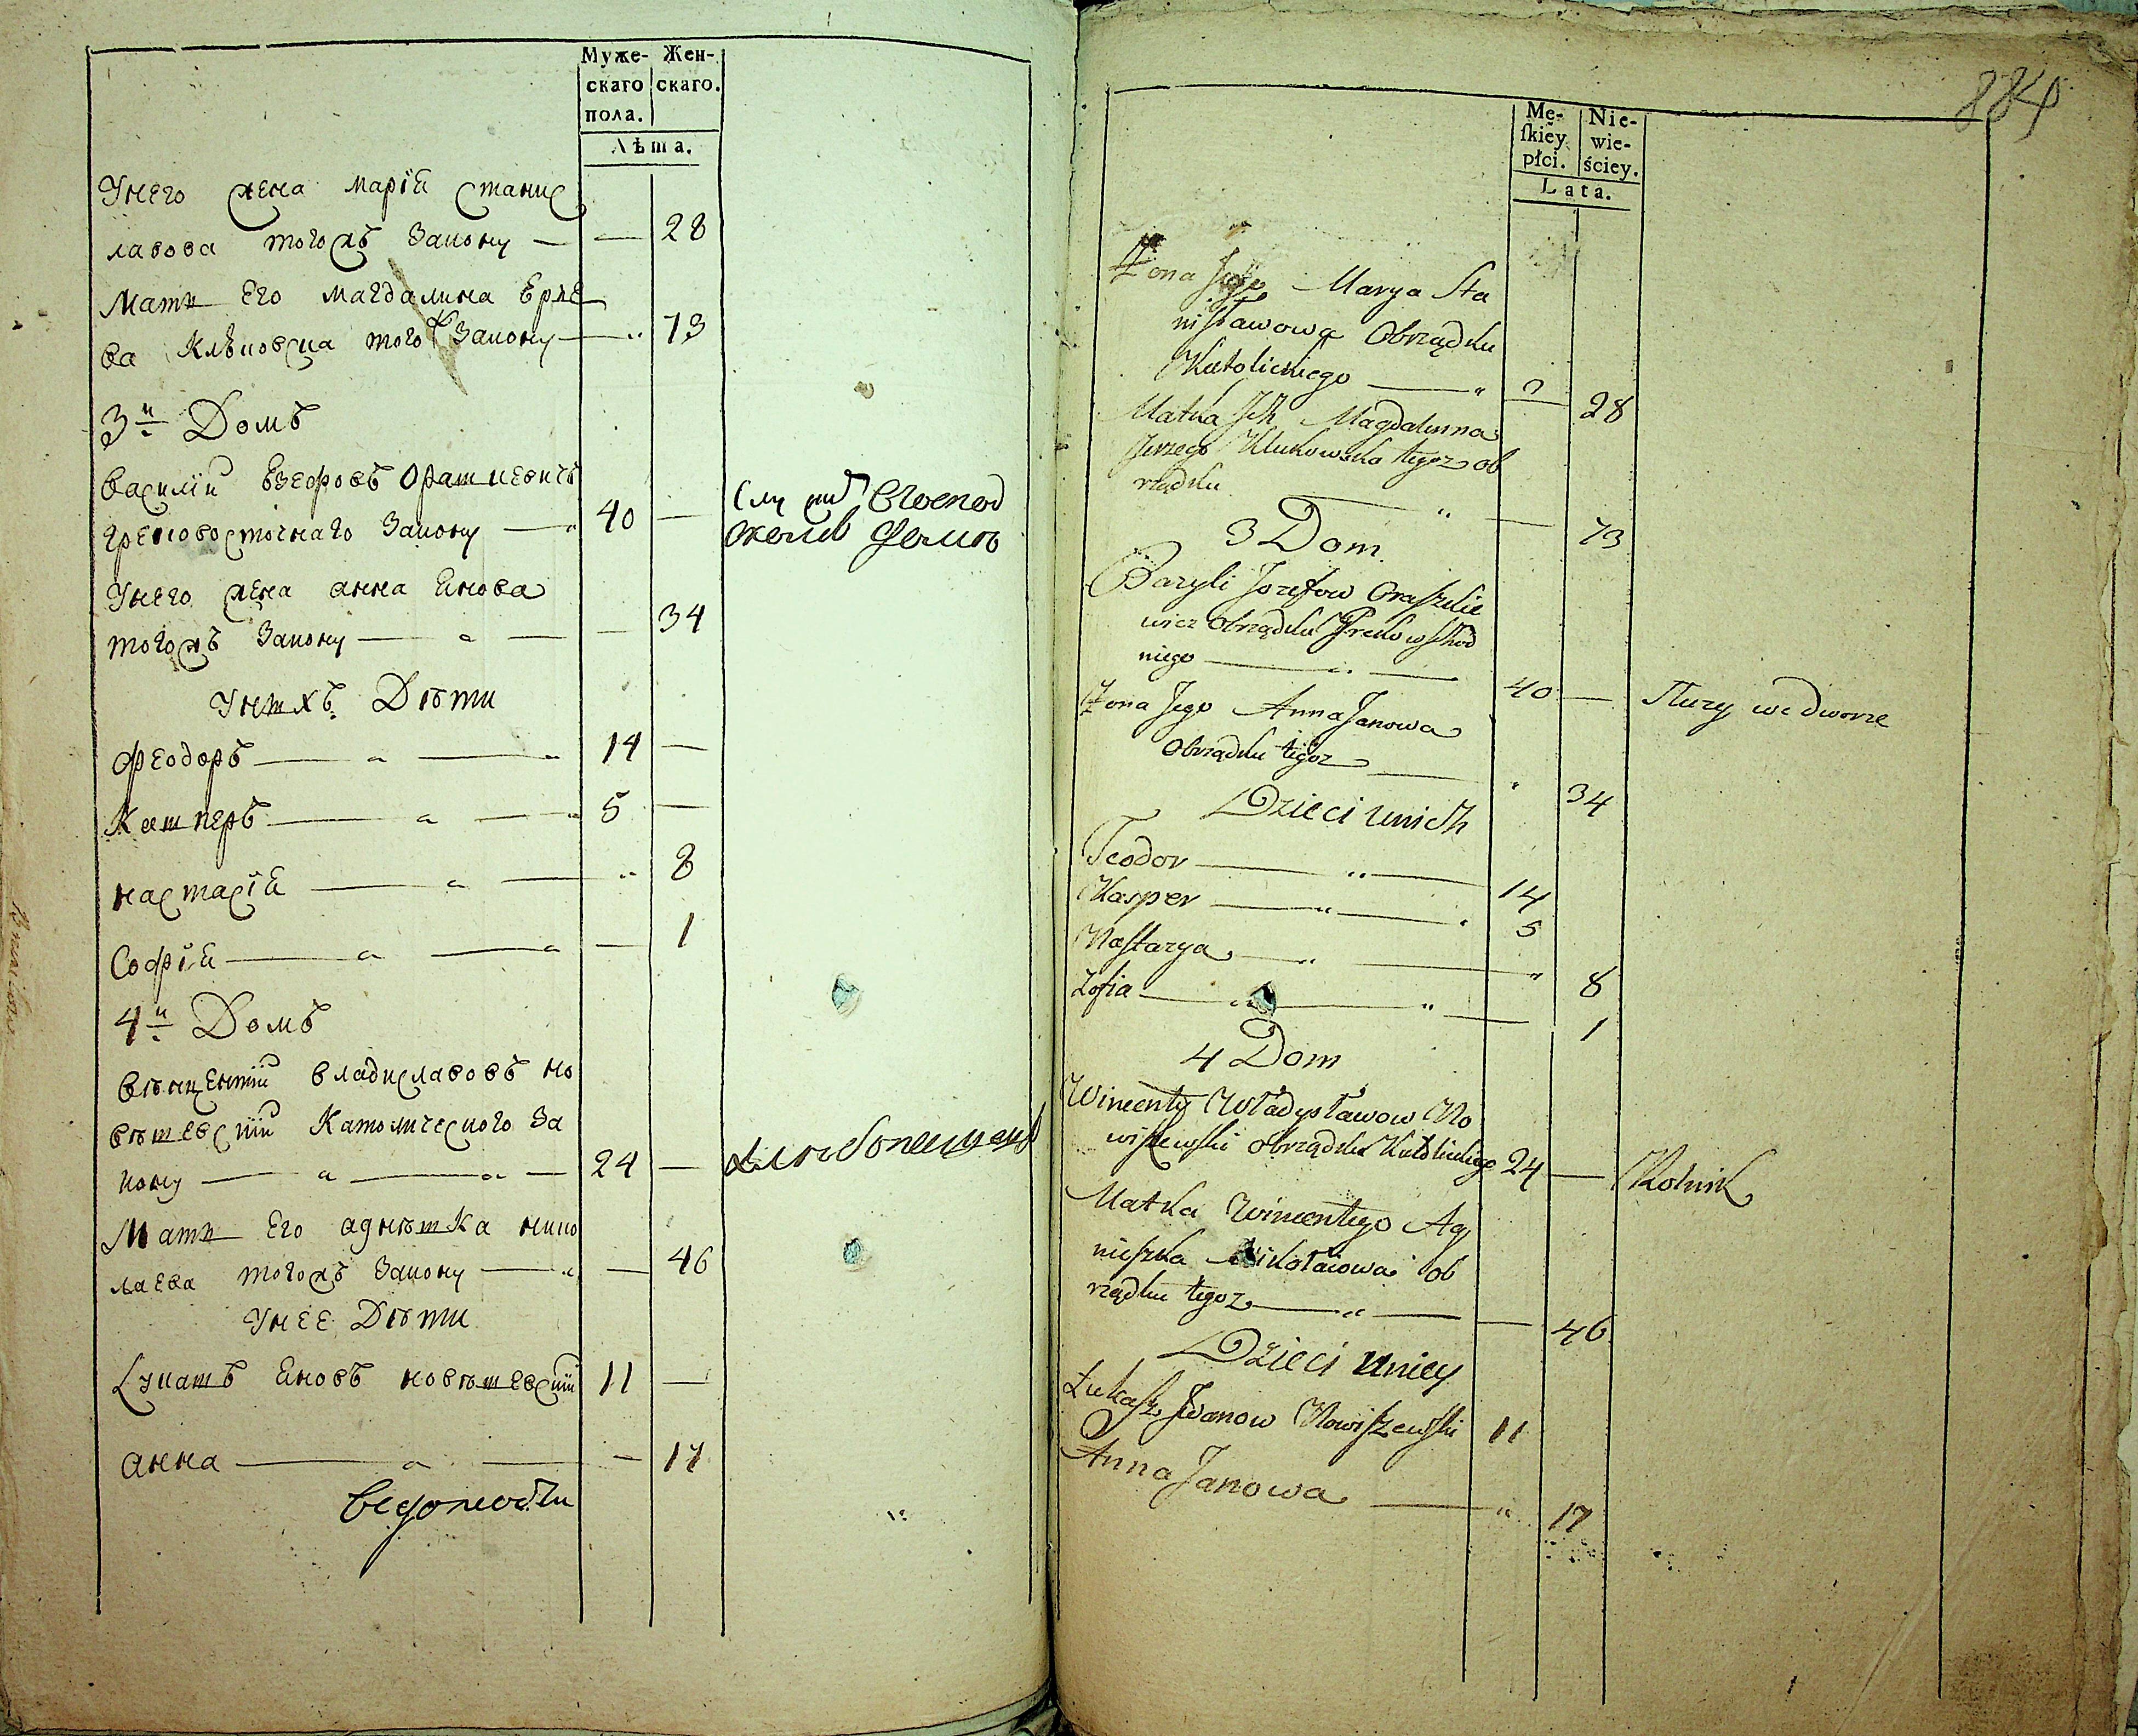 Муже- Жен-
скаго скаго.
пола.
Лѣта.
Унего жена марїя станис
лавова тогожъ Закону — — 28
Мати Его магдалина Ерже
ва Клѣковска того ж Закону — 73
3й Домъ
василїй Езефовъ Орашкевичъ
грековосточнаго Закону — 40 —
Унего жена анна Янова
тогожъ Закону — — 34
Унихъ Дѣти
феодоръ — 14 —
Кашперъ — 5 —
настасїя — 8
Софїя — 1
4й Домъ
вѣнцентїй владиславовъ но
вѣшевскїй Католического За
кону — 24 —
Мати Его агнѣшка нико
лаева тогожъ Закону — — 46
Унее Дѣти
Лукашъ Яновъ новѣшевскїй 11 —
анна — 17
884
Mę- Nie-
ſkiey wie-
płci. ściey.
Lata.
Żona Jego Marya Sta
nisławowa Obrządku
Katolickiego — 28
Matka Ich Magdalenna
Jerzego Klukowska tegoz ob
rządku — 73
3 Dom
Bazyli Jozefow Oraszkie
wicz Obrządku Grekowschod
niego — 40 — Służy we dworze
Żona Jego Anna Janowa
Obrządku tegoz — 34
Dzieci u nich
Teodor — 14
Kasper — 5
Nastazya — 8
Zofia — 1
4 Dom
Wincenty Władysławow No
wiszewski obrządku Katolickiego 24 — Rolnik
Matka Wincentego Ag
nieszka Mikołaiowa ob
rządku tegoz — 46
Dzieci u niey
Łukasz Iwanow Nowiszewski 11
Anna Janowa — 17